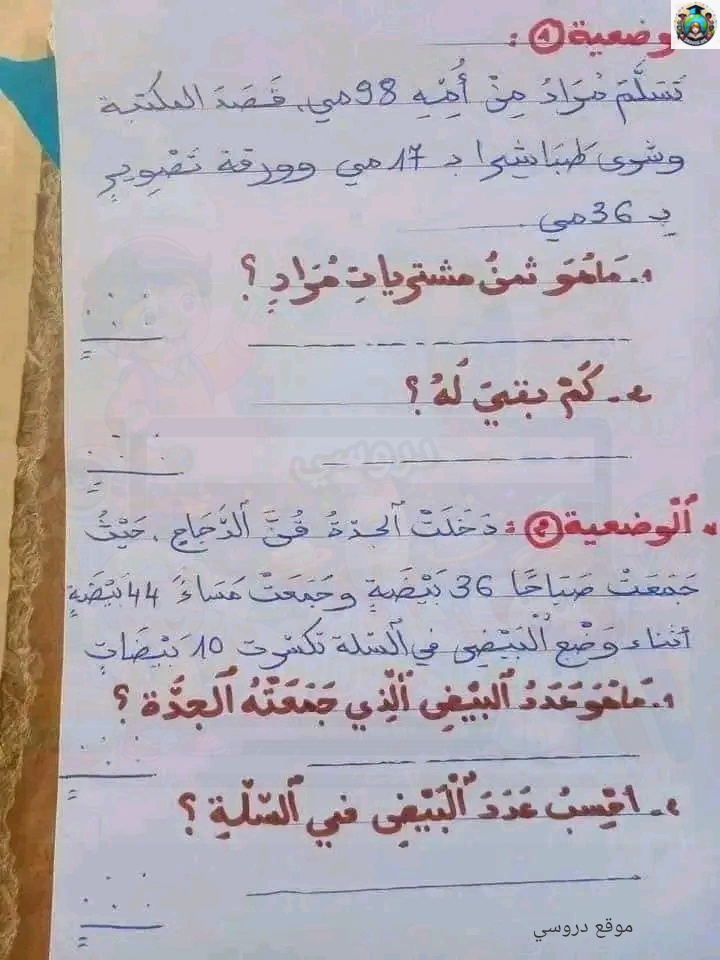 وضعية ①:
تَسَلَّمَ مُرَادُ مِنْ أُمِّهِ 98مي، قَصَدَ المكتبة
وشرى طَبَاشيرا بـ 17مي وورقة تَصْوِيرٍ
بِـ 36مي.
1- مَاهُوَ ثمنُ مشترياتِ مُرَادٍ؟
2- كَمْ بقيَ لَهُ؟
دروسي
الْوضعية ②: دَخَلَتْ الجدّةُ قُنَّ الدَّجَاجِ، حَيْثُ
جَمَعَتْ صَبَاحًا 36 بَيْضَةٍ وجَمَعَتْ مَسَاءً 44 بَيْضَةٍ
أثناء وَضْعِ الْبَيْضِ في السّلة تكسّرت 10 بَيْضَاتٍ
1- مَاهُوَ عَدَدُ البَيْضِ الّذِي جَمَعَتْهُ الجدَّة؟
2- احْسِبْ عَدَدَ الْبَيْضِ في السّلّةِ؟
موقع دروسي